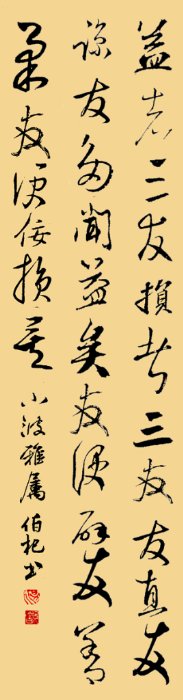 益者三友損者三友友直友
諒友多闻益矣友便辟友善
柔友便佞損矣 小波雅属 伯杞书